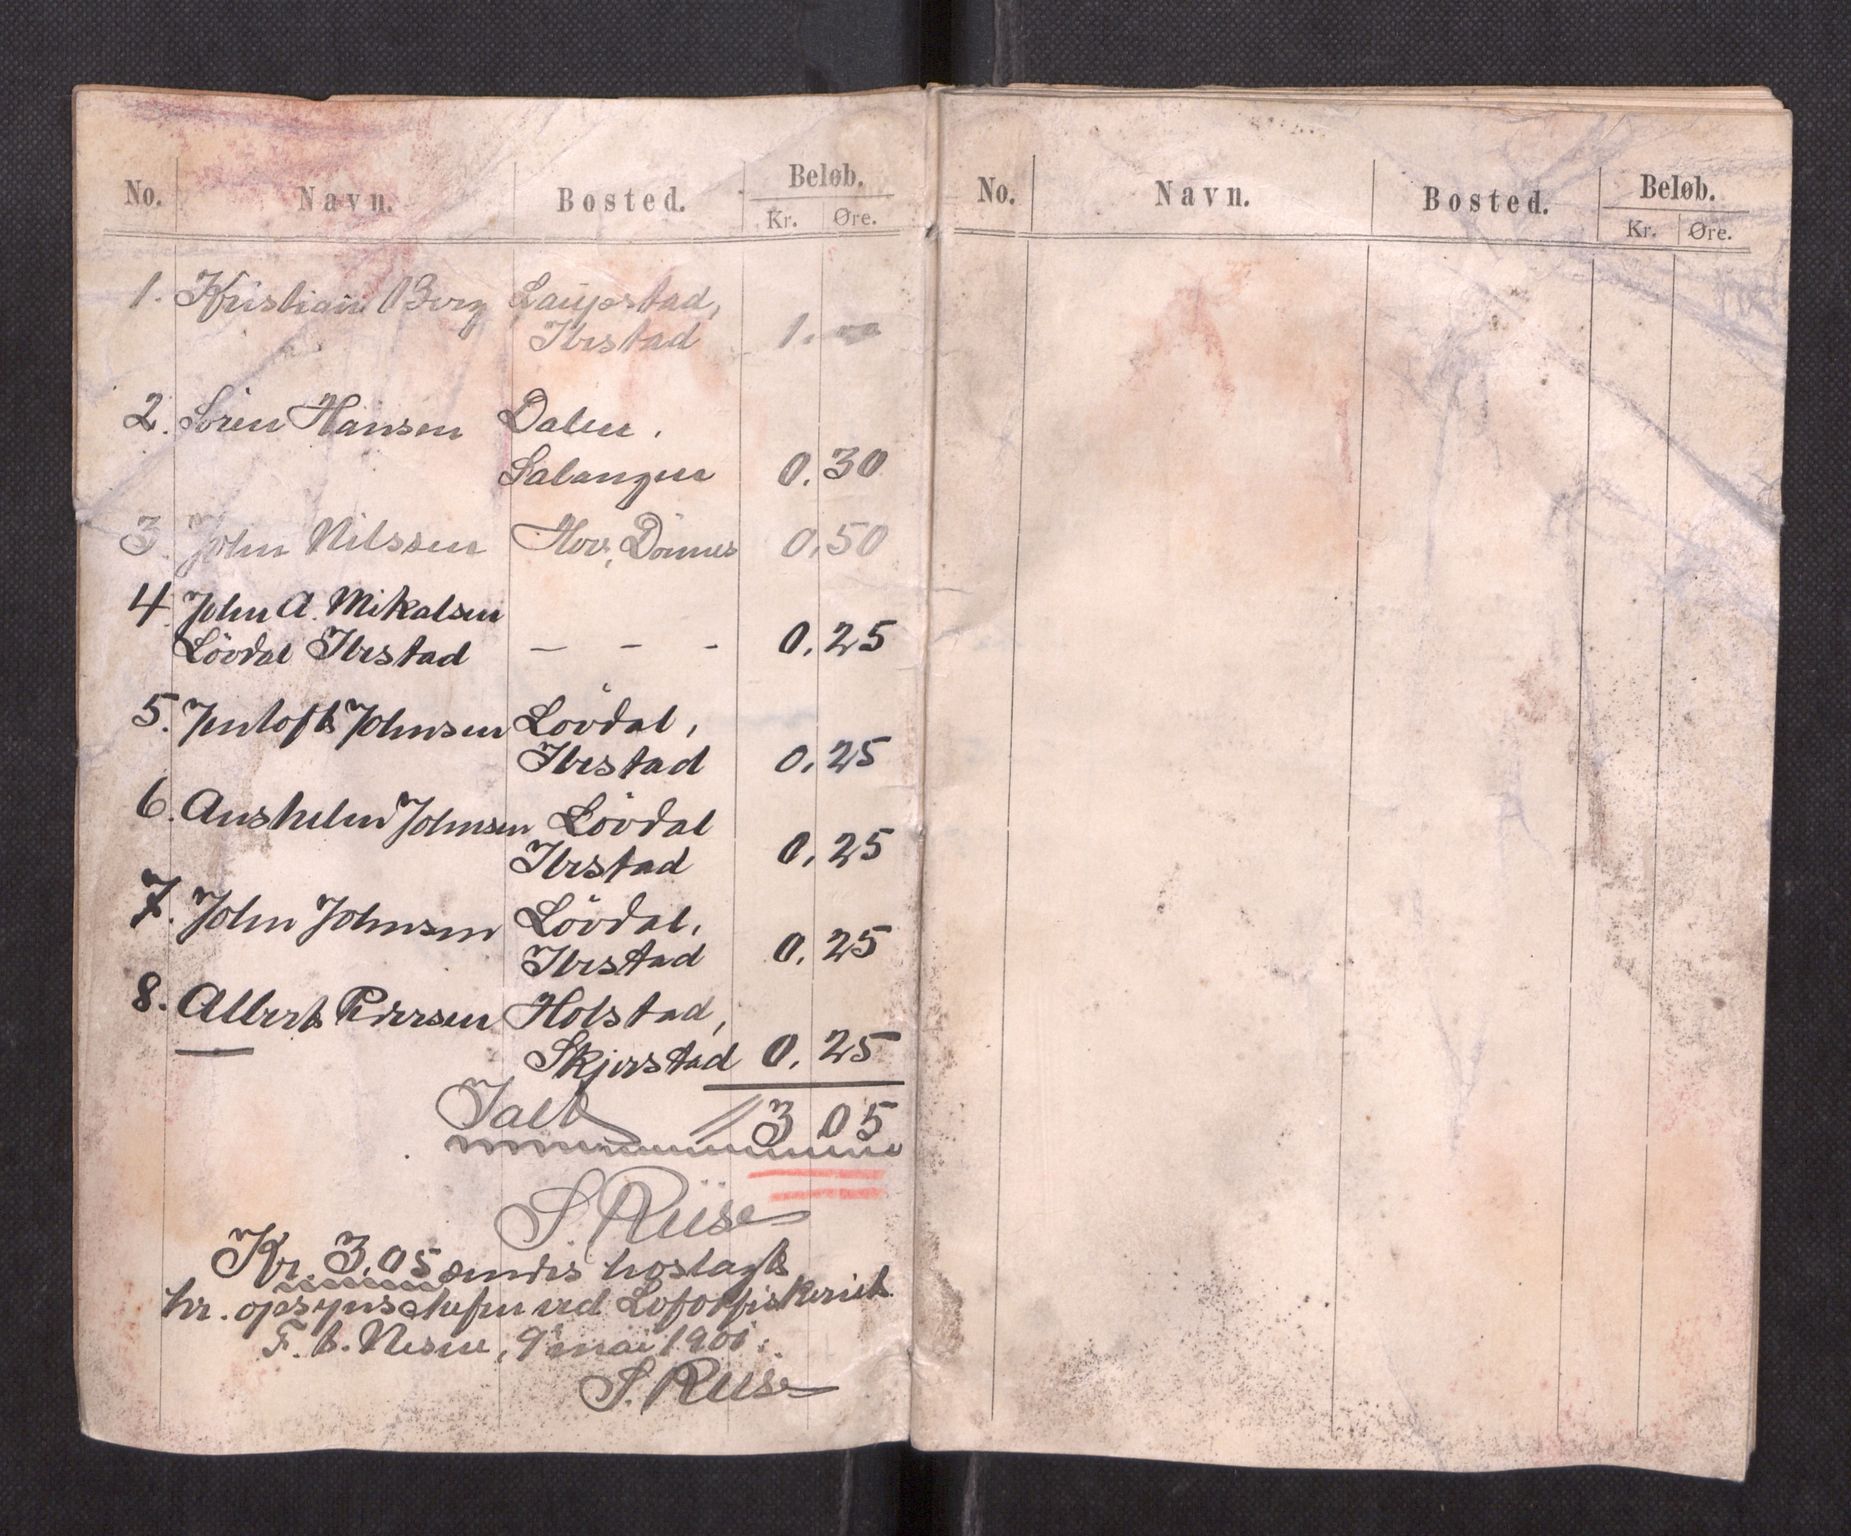 No. Navn. Bosted. Beløb.
Kr. Øre.
1. Kristian Berg Laupstad,
Ibestad 1. "
2. Sören Hansen Dalen.
Salangen 0.30
3. John Nilssen Hov, Dönnes 0.50
4. John A. Mikalsen
Lövdal Ibestad - - - 0.25
5. Jentoft Johnsen Lövdal,
Ibestad 0.25
6. Anshelm Johnsen Lövdal
Ibestad 0.25
7. John Johnsen Lövdal,
Ibestad 0.25
8. Albert Pedersen Holstad,
Skjerstad 0.25
Ialt 3 05
S. Riise
Kr. 3,05 sendes hoslagt
hr. opsynschefen ved Lofotfiskeriet.
F. t. Nesne, 9 mai 1901.
S. Riise
No. Navn. Bosted. Beløb.
Kr. Øre.